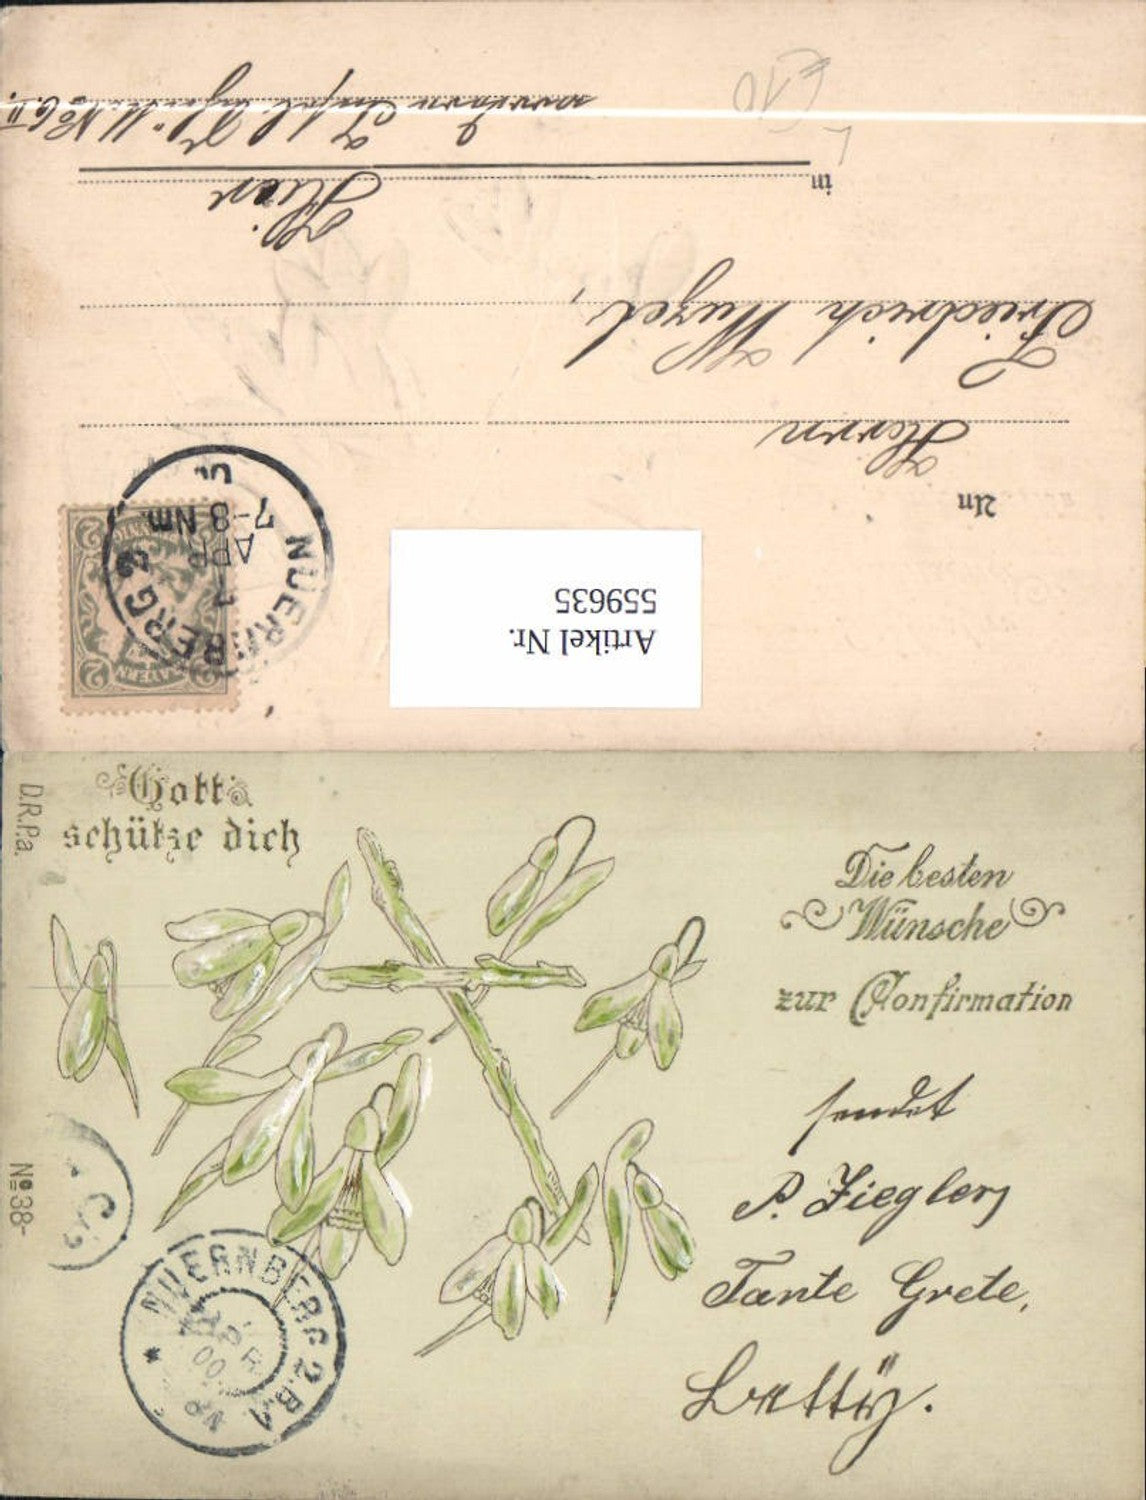 An
Herrn
Friedrich Wuzel,
in
Hier
Artikel Nr.
559635
NUERNBERG 2
APR
7-8 Nm.
BAYERN
2 2
2 2
Gott
schütze dich
D.R.P.a.
Die besten
Wünsche
zur Confirmation
sendet
P. Ziegler,
Tante Grete,
Bettÿ.
No 38-
NUERNBERG 2.B.1
APR
00